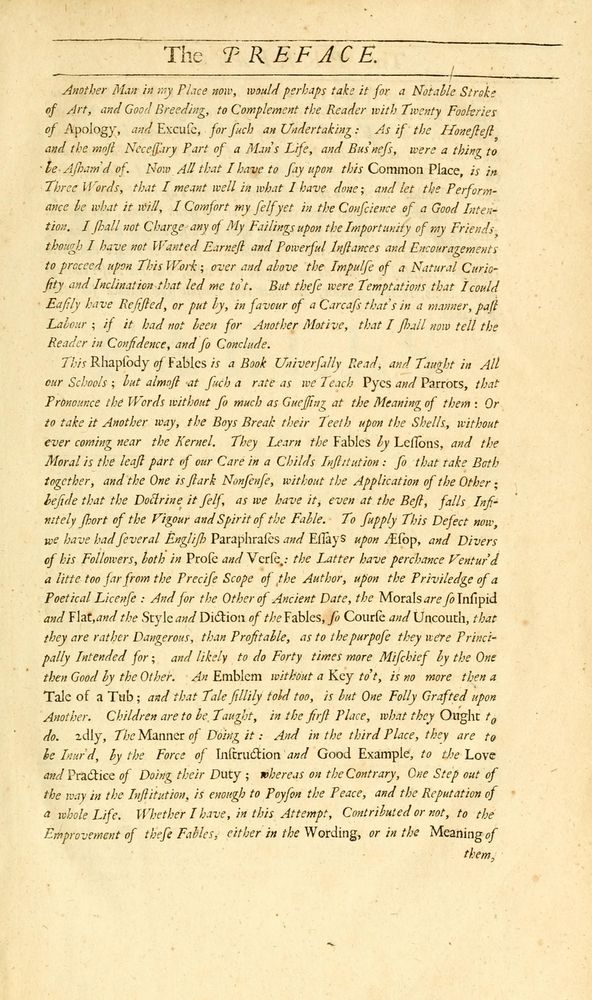 The PREFACE.
Another Man in my Place now, would perhaps take it for a Notable Stroke
of Art, and Good Breeding, to Complement the Reader with Twenty Fooleries
of Apology, and Excuſe, for ſuch an Undertaking: As if the Honeſteſt,
and the moſt Neceſſary Part of a Man's Life, and Buſ'neſs, were a thing to
be Aſham'd of. Now All that I have to ſay upon this Common Place, is in
Three Words, that I meant well in what I have done; and let the Perform-
ance be what it will, I Comfort my ſelf yet in the Conſcience of a Good Inten-
tion. I ſhall not Charge any of My Failings upon the Importunity of my Friends,
though I have not Wanted Earneſt and Powerful Inſtances and Encouragements
to proceed upon This Work; over and above the Impulſe of a Natural Curio-
ſity and Inclination that led me to't. But theſe were Temptations that I could
Eaſily have Reſiſted, or put by, in favour of a Carcaſs that's in a manner, paſt
Labour; if it had not been for Another Motive, that I ſhall now tell the
Reader in Confidence, and ſo Conclude.
This Rhapſody of Fables is a Book Univerſally Read, and Taught in All
our Schools; but almoſt at ſuch a rate as we Teach Pyes and Parrots, that
Pronounce the Words without ſo much as Gueſſing at the Meaning of them: Or
to take it Another way, the Boys Break their Teeth upon the Shells, without
ever coming near the Kernel. They Learn the Fables by Leſſons, and the
Moral is the leaſt part of our Care in a Childs Inſtitution: ſo that take Both
together, and the One is ſtark Nonſenſe, without the Application of the Other;
beſide that the Doctrine it ſelf, as we have it, even at the Beſt, falls Infi-
nitely ſhort of the Vigour and Spirit of the Fable. To ſupply This Defect now,
we have had ſeveral Engliſh Paraphraſes and Eſſays upon Æſop, and Divers
of his Followers, both in Proſe and Verſe: the Latter have perchance Ventur'd
a litte too far from the Preciſe Scope of the Author, upon the Priviledge of a
Poetical Licenſe: And for the Other of Ancient Date, the Morals are ſo Inſipid
and Flat, and the Style and Diction of the Fables, ſo Courſe and Uncouth, that
they are rather Dangerous, than Profitable, as to the purpoſe they were Princi-
pally Intended for; and likely to do Forty times more Miſchief by the One
then Good by the Other. An Emblem without a Key to't, is no more then a
Tale of a Tub; and that Tale ſillily told too, is but One Folly Grafted upon
Another. Children are to be Taught, in the firſt Place, what they Ought to
do. 2dly, The Manner of Doing it: And in the third Place, they are to
be Inur'd, by the Force of Inſtruction and Good Example, to the Love
and Practice of Doing their Duty; whereas on the Contrary, One Step out of
the way in the Inſtitution, is enough to Poyſon the Peace, and the Reputation of
a whole Life. Whether I have, in this Attempt, Contributed or not, to the
Emprovement of theſe Fables, either in the Wording, or in the Meaning of
them,